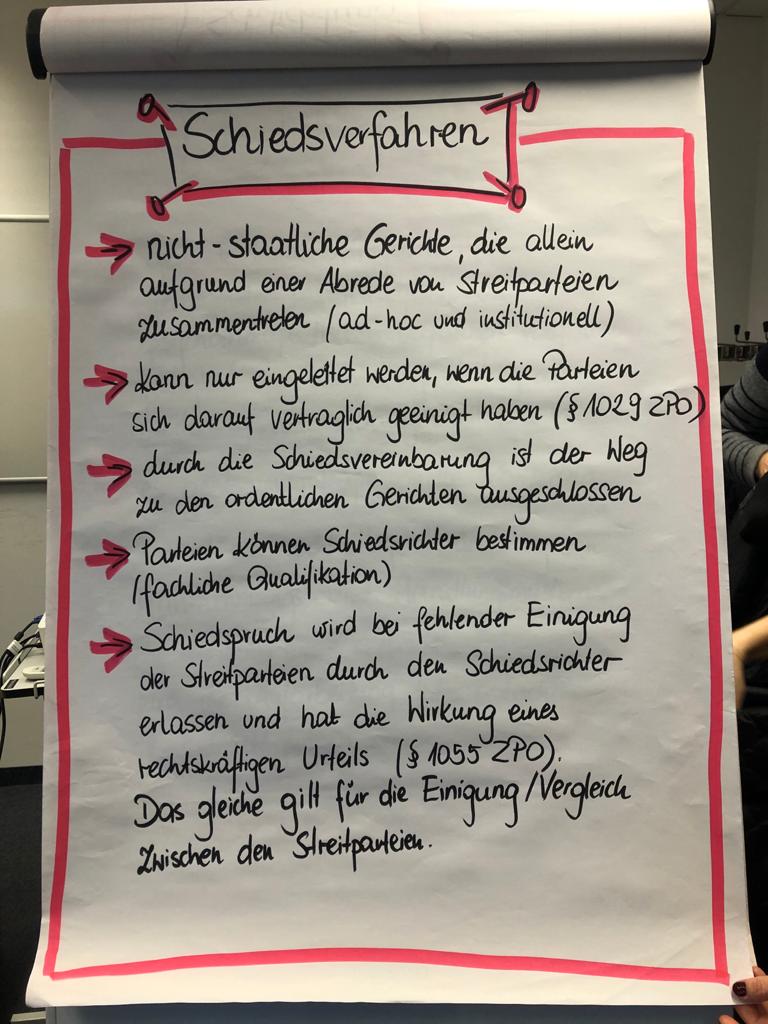 Schiedsverfahren
→ nicht-staatliche Gerichte, die allein
aufgrund einer Abrede von Streitparteien
zusammentreten (ad-hoc und institutionell)
→ Kann nur eingeleitet werden, wenn die Parteien
sich darauf vertraglich geeinigt haben (§ 1029 ZPO)
→ durch die Schiedsvereinbarung ist der Weg
zu den ordentlichen Gerichten ausgeschlossen
→ Parteien können Schiedsrichter bestimmen
(fachliche Qualifikation)
→ Schiedspruch wird bei fehlender Einigung
der Streitparteien durch den Schiedsrichter
erlassen und hat die Wirkung eines
rechtskräftigen Urteils (§ 1055 ZPO).
Das gleiche gilt für die Einigung/Vergleich
zwischen den Streitparteien.